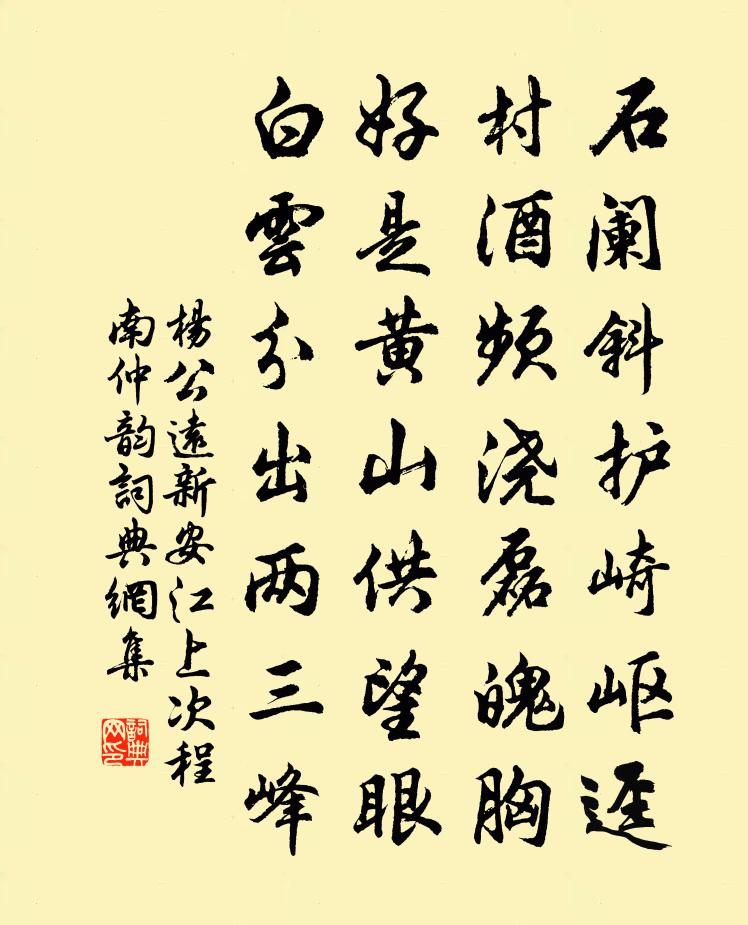 石阑斜护崎岖迳
村酒频浇磊魄胸
好是黄山供望眼
白雲分出两三峰
楊公遠新安江上次程
南仲韵詞典網集
詞典
网印